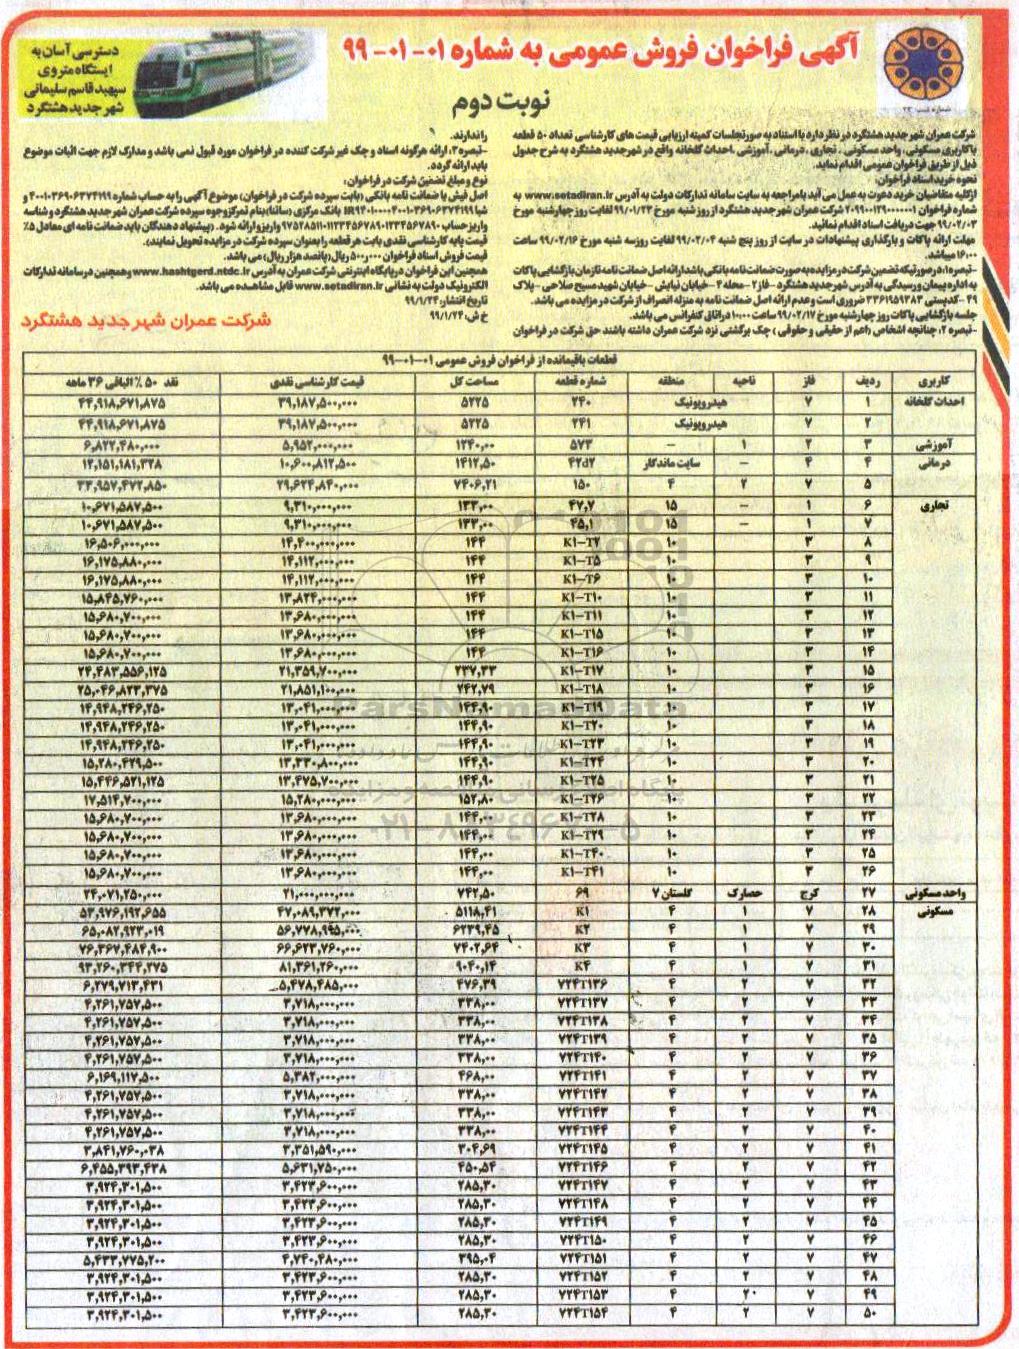 آگهی فراخوان فروش عمومی به شماره ۰۱-۰۱-۹۹
نوبت دوم
دسترسی آسان به
ایستگاه متروی
سپهبد قاسم سلیمانی
شهر جدید هشتگرد
شرکت عمران شهر جدید هشتگرد در نظر دارد با استناد به صورتجلسات کمیته ارزیابی قیمت های کارشناسی تعداد ۵۰ قطعه
با کاربری مسکونی، واحد مسکونی، تجاری، درمانی، آموزشی، احداث گلخانه واقع در شهر جدید هشتگرد به شرح جدول
ذیل از طریق فراخوان عمومی اقدام نماید.
نحوه خرید اسناد فراخوان:
ازکلیه متقاضیان خرید دعوت به عمل می آید با مراجعه به سایت سامانه تدارکات دولت به آدرس www.setadiran.ir به
شماره فراخوان ۲۰۹۹۰۰۱۲۹۰۰۰۰۰۱ شرکت عمران شهر جدید هشتگرد از روز شنبه مورخ ۹۹/۰۱/۲۳ لغایت روز چهارشنبه مورخ
۹۹/۰۲/۰۳ جهت دریافت اسناد اقدام نمائید.
مهلت ارائه پاکات و بارگذاری پیشنهادات در سایت از روز پنج شنبه ۹۹/۰۲/۰۴ لغایت روز سه شنبه مورخ ۹۹/۰۲/۱۶ ساعت
۱۶:۰۰ میباشد.
-تبصره۱: در صورتیکه تضمین شرکت در مزایده به صورت ضمانت نامه بانکی باشد ارائه اصل ضمانت نامه تا زمان بازگشایی پاکات
به اداره پیمان و رسیدگی به آدرس شهر جدید هشتگرد - فاز ۲ - محله ۴ - خیابان نیایش - خیابان شهید مسیح صلاحی - پلاک
۴۹ - کدپستی ۳۳۶۱۹۵۹۳۸۳ ضروری است و عدم ارائه اصل ضمانت نامه به منزله انصراف از شرکت در مزایده می باشد.
جلسه بازگشایی پاکات روز چهارشنبه مورخ ۹۹/۰۲/۱۷ ساعت ۱۰:۰۰ در اتاق کنفرانس می باشد.
-تبصره ۲: چنانچه اشخاص (اعم از حقیقی و حقوقی) چک برگشتی نزد شرکت عمران داشته باشند حق شرکت در فراخوان
را ندارند.
-تبصره۳: ارائه هرگونه اسناد و چک غیر شرکت کننده در فراخوان مورد قبول نمی باشد و مدارک لازم جهت اثبات موضوع
باید ارائه گردد.
نوع و مبلغ تضمین شرکت در فراخوان:
اصل فیش یا ضمانت نامه بانکی (بابت سپرده شرکت در فراخوان) موضوع آگهی را به حساب شماره ۴۰۰۱۰۳۶۹۰۶۳۷۴۱۹۹ و
قیمت پایه کارشناسی نقدی بابت هر قطعه را بعنوان سپرده شرکت در مزایده تحویل نمایند).
قیمت فروش اسناد فراخوان ۵۰۰٫۰۰۰ ریال (پانصد هزار ریال) می باشد.
همچنین این فراخوان در پایگاه اینترنتی شرکت عمران به آدرس www.hashtgerd.ntdc.ir وهمچنین در سامانه تدارکات
الکترونیک دولت به نشانی www.setadiran.ir قابل مشاهده می باشد.
تاریخ انتشار: ۹۹/۱/۲۴
خ ش: ۹۹/۱/۲۴
شرکت عمران شهر جدید هشتگرد
قطعات باقیمانده از فراخوان فروش عمومی ۰۱-۰۱-۹۹
کاربری ردیف فاز ناحیه منطقه شماره قطعه مساحت کل قیمت کارشناسی نقدی نقد ۵۰٪ الباقی ۳۶ ماهه
احداث گلخانه ۱ ۷ هیدروپونیک ۲۴۰ ۵۲۲۵ ۳۹,۱۸۷,۵۰۰,۰۰۰ ۴۴,۹۱۸,۶۷۱,۸۷۵
۲ ۷ هیدروپونیک ۲۴۱ ۵۲۲۵ ۳۹,۱۸۷,۵۰۰,۰۰۰ ۴۴,۹۱۸,۶۷۱,۸۷۵
آموزشی ۳ ۲ ۱ - ۵۷۳ ۱۲۴۰,۰۰ ۵,۹۵۲,۰۰۰,۰۰۰ ۶,۸۲۲,۴۸۰,۰۰۰
درمانی ۴ ۴ - سایت ماندگار ۴۲d۲ ۱۴۱۲,۵۰ ۱۰,۶۰۰,۸۱۲,۵۰۰ ۱۲,۱۵۱,۱۸۱,۳۲۸
۵ ۷ ۲ ۴ ۱۵۰ ۷۴۰۶,۲۱ ۲۹,۶۲۴,۸۴۰,۰۰۰ ۳۳,۹۵۷,۴۷۲,۸۵۰
تجاری ۶ ۱ - ۱۵ ۴۷,۷ ۱۳۳,۰۰ ۹,۳۱۰,۰۰۰,۰۰۰ ۱۰,۶۷۱,۵۸۷,۵۰۰
۷ ۱ - ۱۵ ۴۵,۱ ۱۳۳,۰۰ ۹,۳۱۰,۰۰۰,۰۰۰ ۱۰,۶۷۱,۵۸۷,۵۰۰
۸ ۳ ۱۰ K۱-T۷ ۱۴۴ ۱۴,۴۰۰,۰۰۰,۰۰۰ ۱۶,۵۰۶,۰۰۰,۰۰۰
۹ ۳ ۱۰ K۱-T۵ ۱۴۴ ۱۴,۱۱۲,۰۰۰,۰۰۰ ۱۶,۱۷۵,۸۸۰,۰۰۰
۱۰ ۳ ۱۰ K۱-T۶ ۱۴۴ ۱۴,۱۱۲,۰۰۰,۰۰۰ ۱۶,۱۷۵,۸۸۰,۰۰۰
۱۱ ۳ ۱۰ K۱-T۱۰ ۱۴۴ ۱۳,۸۲۴,۰۰۰,۰۰۰ ۱۵,۸۴۵,۷۶۰,۰۰۰
۱۲ ۳ ۱۰ K۱-T۱۱ ۱۴۴ ۱۳,۶۸۰,۰۰۰,۰۰۰ ۱۵,۶۸۰,۷۰۰,۰۰۰
۱۳ ۳ ۱۰ K۱-T۱۵ ۱۴۴ ۱۳,۶۸۰,۰۰۰,۰۰۰ ۱۵,۶۸۰,۷۰۰,۰۰۰
۱۴ ۳ ۱۰ K۱-T۱۶ ۱۴۴ ۱۳,۶۸۰,۰۰۰,۰۰۰ ۱۵,۶۸۰,۷۰۰,۰۰۰
۱۵ ۳ ۱۰ K۱-T۱۷ ۲۳۷,۳۳ ۲۱,۳۵۹,۷۰۰,۰۰۰ ۲۴,۴۸۳,۵۵۶,۱۲۵
۱۶ ۳ ۱۰ K۱-T۱۸ ۲۴۲,۷۹ ۲۱,۸۵۱,۱۰۰,۰۰۰ ۲۵,۰۴۶,۸۲۳,۳۷۵
۱۷ ۳ ۱۰ K۱-T۱۹ ۱۴۴,۹۰ ۱۳,۰۴۱,۰۰۰,۰۰۰ ۱۴,۹۴۸,۲۴۶,۲۵۰
۱۸ ۳ ۱۰ K۱-T۲۰ ۱۴۴,۹۰ ۱۳,۰۴۱,۰۰۰,۰۰۰ ۱۴,۹۴۸,۲۴۶,۲۵۰
۱۹ ۳ ۱۰ K۱-T۲۳ ۱۴۴,۹۰ ۱۳,۰۴۱,۰۰۰,۰۰۰ ۱۴,۹۴۸,۲۴۶,۲۵۰
۲۰ ۳ ۱۰ K۱-T۲۴ ۱۴۴,۹۰ ۱۳,۳۳۰,۸۰۰,۰۰۰ ۱۵,۲۸۰,۴۲۹,۵۰۰
۲۱ ۳ ۱۰ K۱-T۲۵ ۱۴۴,۹۰ ۱۳,۴۷۵,۷۰۰,۰۰۰ ۱۵,۴۴۶,۵۲۱,۱۲۵
۲۲ ۳ ۱۰ K۱-T۲۶ ۱۵۲,۸۰ ۱۵,۲۸۰,۰۰۰,۰۰۰ ۱۷,۵۱۴,۷۰۰,۰۰۰
۲۳ ۳ ۱۰ K۱-T۲۸ ۱۴۴,۰۰ ۱۳,۶۸۰,۰۰۰,۰۰۰ ۱۵,۶۸۰,۷۰۰,۰۰۰
۲۴ ۳ ۱۰ K۱-T۲۹ ۱۴۴,۰۰ ۱۳,۶۸۰,۰۰۰,۰۰۰ ۱۵,۶۸۰,۷۰۰,۰۰۰
۲۵ ۳ ۱۰ K۱-T۴۰ ۱۴۴,۰۰ ۱۳,۶۸۰,۰۰۰,۰۰۰ ۱۵,۶۸۰,۷۰۰,۰۰۰
۲۶ ۳ ۱۰ K۱-T۴۱ ۱۴۴,۰۰ ۱۳,۶۸۰,۰۰۰,۰۰۰ ۱۵,۶۸۰,۷۰۰,۰۰۰
واحد مسکونی ۲۷ کرج حصارک گلستان ۷ ۶۹ ۷۴۲,۵۰ ۲۱,۰۰۰,۰۰۰,۰۰۰ ۲۴,۰۷۱,۲۵۰,۰۰۰
مسکونی ۲۸ ۷ ۱ ۴ K۱ ۵۱۱۸,۴۱ ۴۷,۰۸۹,۳۷۲,۰۰۰ ۵۳,۹۷۶,۱۹۲,۶۵۵
۲۹ ۷ ۱ ۴ K۲ ۶۲۳۹,۴۵ ۵۶,۷۷۸,۹۹۵,۰۰۰ ۶۵,۰۸۲,۹۲۳,۰۱۹
۳۰ ۷ ۱ ۴ K۳ ۷۴۰۲,۶۴ ۶۶,۶۲۳,۷۶۰,۰۰۰ ۷۶,۳۶۷,۴۸۴,۹۰۰
۳۱ ۷ ۱ ۴ K۴ ۹۰۴۰,۱۴ ۸۱,۳۶۱,۲۶۰,۰۰۰ ۹۳,۲۶۰,۳۴۴,۲۷۵
۳۲ ۷ ۲ ۴ ۷۲۴T۱۳۶ ۴۷۶,۳۹ ۵,۴۷۸,۴۸۵,۰۰۰ ۶,۲۷۹,۷۱۳,۴۳۱
۳۳ ۷ ۲ ۴ ۷۲۴T۱۳۷ ۳۳۸,۰۰ ۳,۷۱۸,۰۰۰,۰۰۰ ۴,۲۶۱,۷۵۷,۵۰۰
۳۴ ۷ ۲ ۴ ۷۲۴T۱۳۸ ۳۳۸,۰۰ ۳,۷۱۸,۰۰۰,۰۰۰ ۴,۲۶۱,۷۵۷,۵۰۰
۳۵ ۷ ۲ ۴ ۷۲۴T۱۳۹ ۳۳۸,۰۰ ۳,۷۱۸,۰۰۰,۰۰۰ ۴,۲۶۱,۷۵۷,۵۰۰
۳۶ ۷ ۲ ۴ ۷۲۴T۱۴۰ ۳۳۸,۰۰ ۳,۷۱۸,۰۰۰,۰۰۰ ۴,۲۶۱,۷۵۷,۵۰۰
۳۷ ۷ ۲ ۴ ۷۲۴T۱۴۱ ۴۶۸,۰۰ ۵,۳۸۲,۰۰۰,۰۰۰ ۶,۱۶۹,۱۱۷,۵۰۰
۳۸ ۷ ۲ ۴ ۷۲۴T۱۴۲ ۳۳۸,۰۰ ۳,۷۱۸,۰۰۰,۰۰۰ ۴,۲۶۱,۷۵۷,۵۰۰
۳۹ ۷ ۲ ۴ ۷۲۴T۱۴۳ ۳۳۸,۰۰ ۳,۷۱۸,۰۰۰,۰۰۰ ۴,۲۶۱,۷۵۷,۵۰۰
۴۰ ۷ ۲ ۴ ۷۲۴T۱۴۴ ۳۳۸,۰۰ ۳,۷۱۸,۰۰۰,۰۰۰ ۴,۲۶۱,۷۵۷,۵۰۰
۴۱ ۷ ۲ ۴ ۷۲۴T۱۴۵ ۳۰۴,۶۹ ۳,۳۵۱,۵۹۰,۰۰۰ ۳,۸۴۱,۷۶۰,۰۳۸
۴۲ ۷ ۲ ۴ ۷۲۴T۱۴۶ ۴۵۰,۵۴ ۵,۶۳۱,۷۵۰,۰۰۰ ۶,۴۵۵,۳۹۳,۴۳۸
۴۳ ۷ ۲ ۴ ۷۲۴T۱۴۷ ۲۸۵,۳۰ ۳,۴۲۳,۶۰۰,۰۰۰ ۳,۹۲۴,۳۰۱,۵۰۰
۴۴ ۷ ۲ ۴ ۷۲۴T۱۴۸ ۲۸۵,۳۰ ۳,۴۲۳,۶۰۰,۰۰۰ ۳,۹۲۴,۳۰۱,۵۰۰
۴۵ ۷ ۲ ۴ ۷۲۴T۱۴۹ ۲۸۵,۳۰ ۳,۴۲۳,۶۰۰,۰۰۰ ۳,۹۲۴,۳۰۱,۵۰۰
۴۶ ۷ ۲ ۴ ۷۲۴T۱۵۰ ۲۸۵,۳۰ ۳,۴۲۳,۶۰۰,۰۰۰ ۳,۹۲۴,۳۰۱,۵۰۰
۴۷ ۷ ۲ ۴ ۷۲۴T۱۵۱ ۳۹۵,۰۴ ۴,۷۴۰,۴۸۰,۰۰۰ ۵,۴۳۳,۷۷۵,۲۰۰
۴۸ ۷ ۲ ۴ ۷۲۴T۱۵۲ ۲۸۵,۳۰ ۳,۴۲۳,۶۰۰,۰۰۰ ۳,۹۲۴,۳۰۱,۵۰۰
۴۹ ۷ ۲ ۴ ۷۲۴T۱۵۳ ۲۸۵,۳۰ ۳,۴۲۳,۶۰۰,۰۰۰ ۳,۹۲۴,۳۰۱,۵۰۰
۵۰ ۷ ۲ ۴ ۷۲۴T۱۵۴ ۲۸۵,۳۰ ۳,۴۲۳,۶۰۰,۰۰۰ ۳,۹۲۴,۳۰۱,۵۰۰